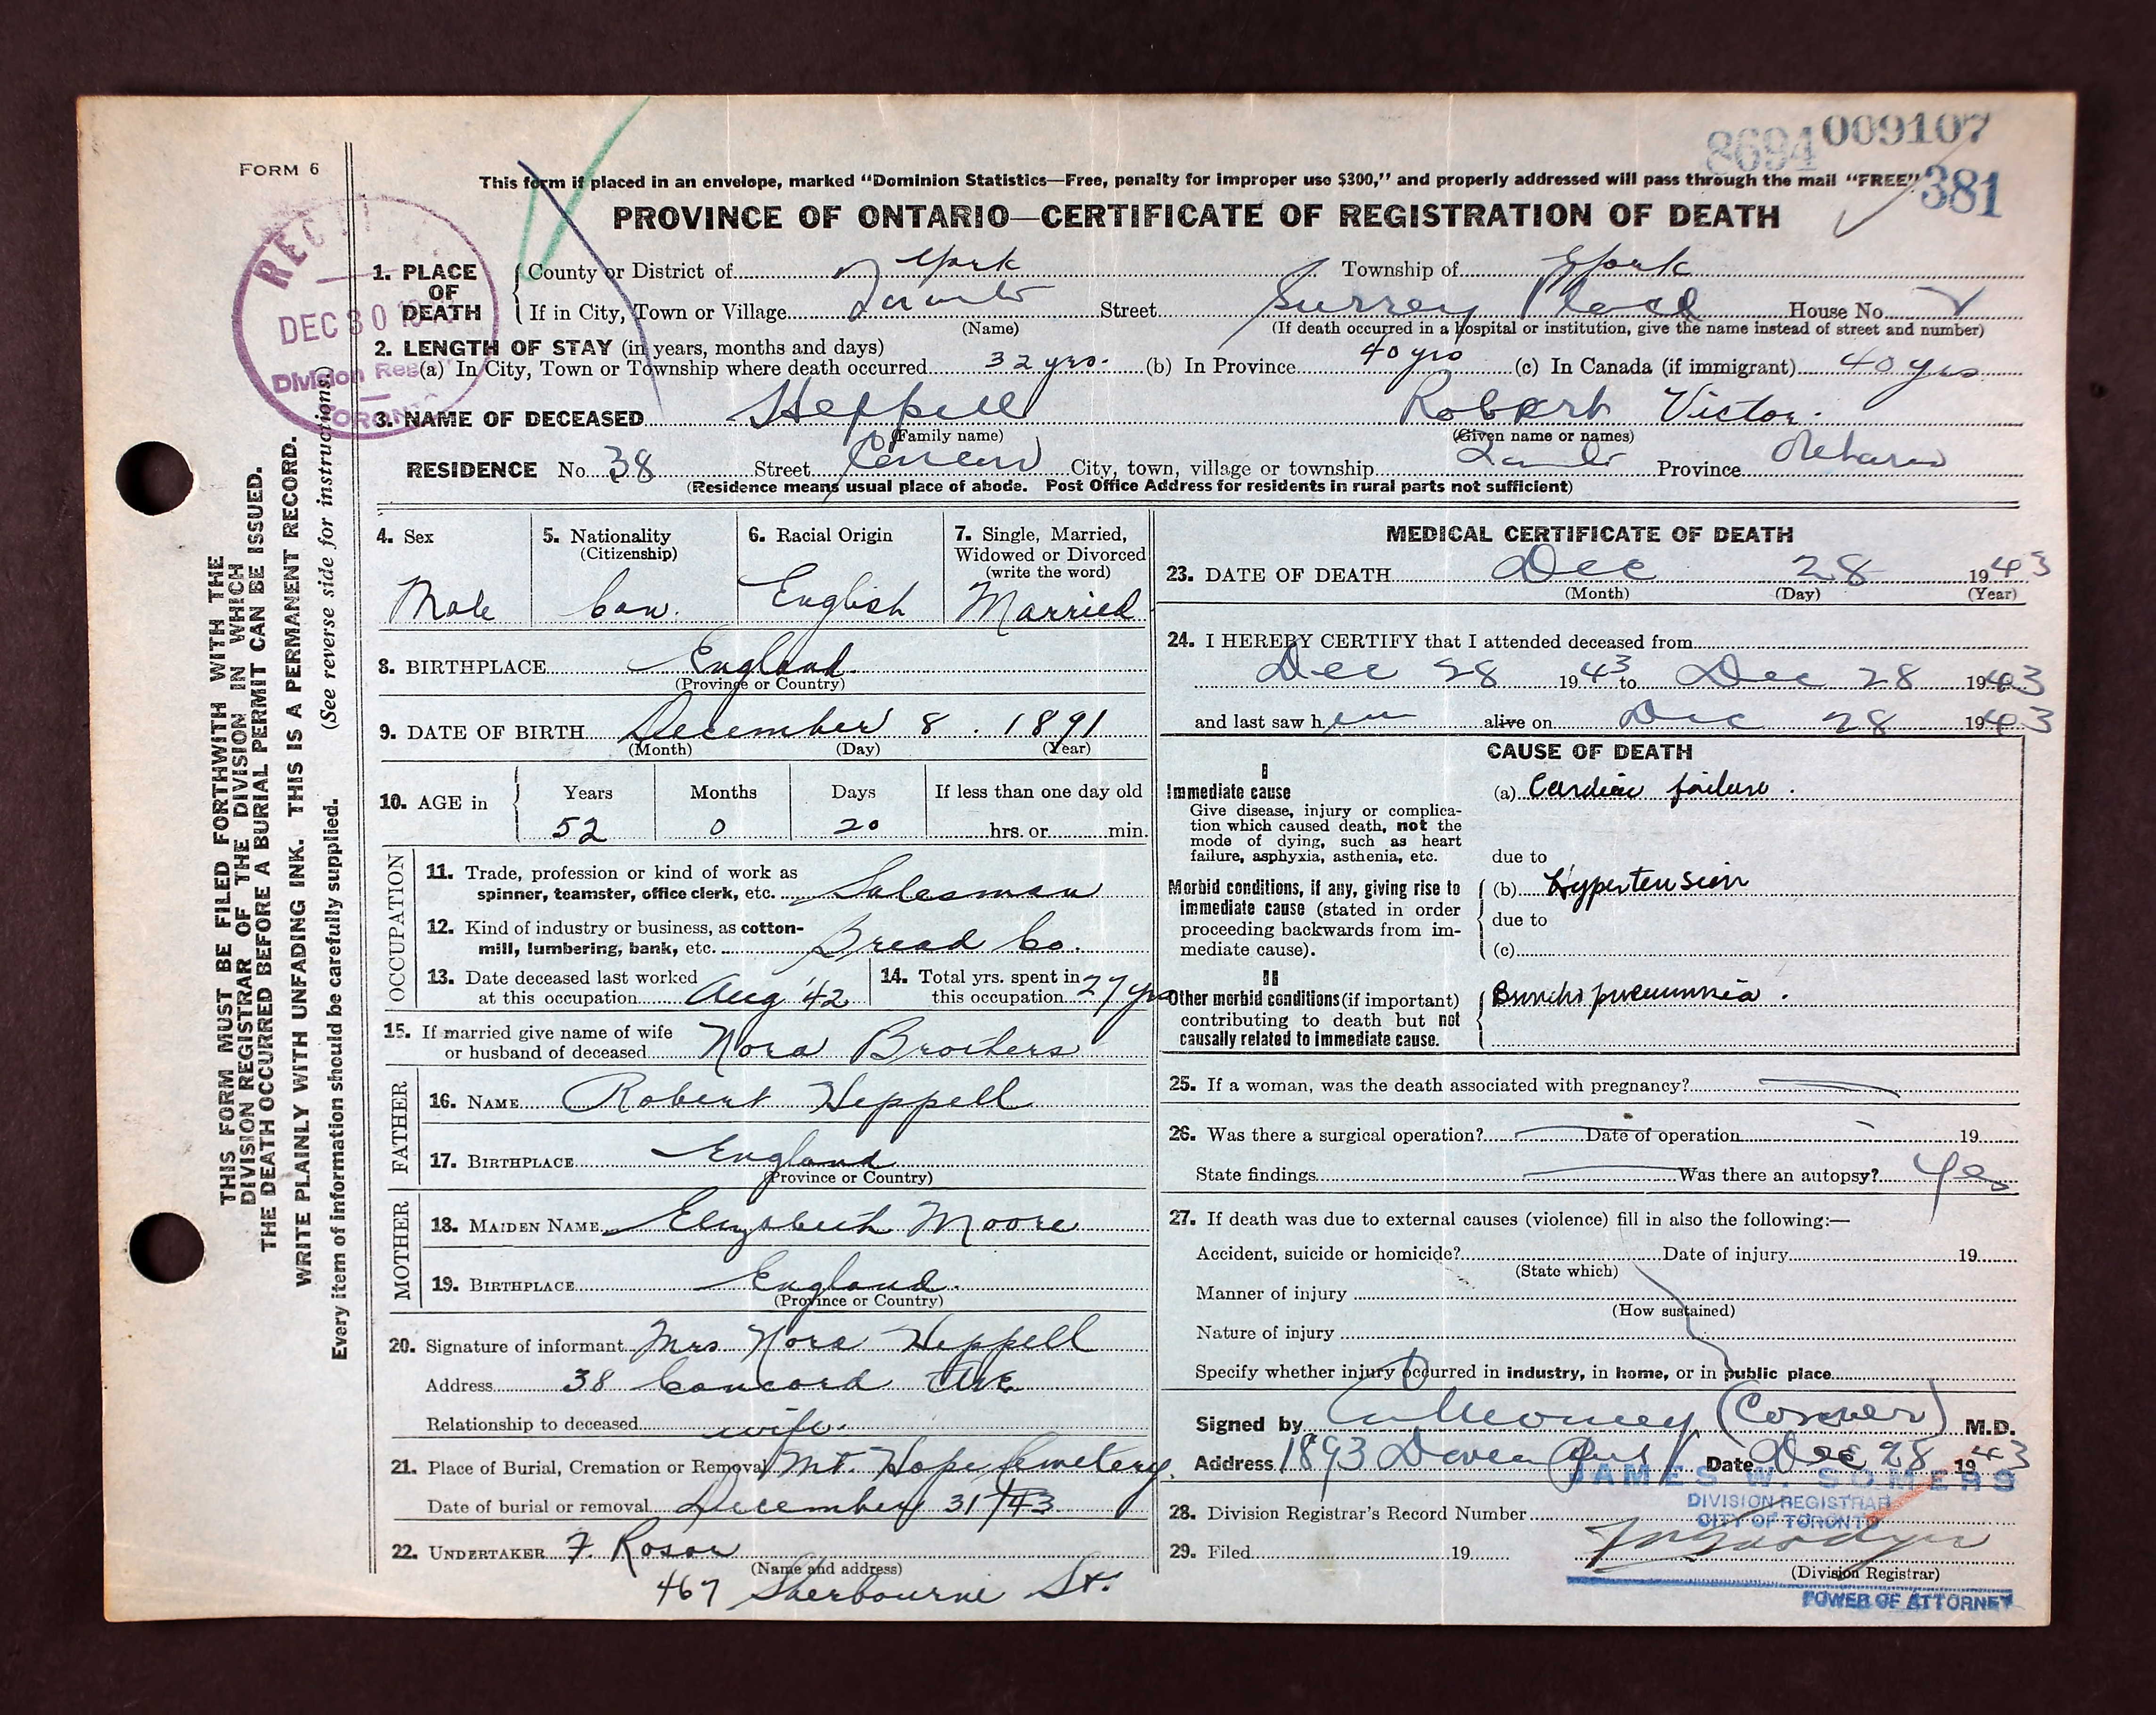 8694 009107
FORM 6
This form if placed in an envelope, marked "Dominion Statistics—Free, penalty for improper use $300," and properly addressed will pass through the mail "FREE" 381
PROVINCE OF ONTARIO—CERTIFICATE OF REGISTRATION OF DEATH
REC'D
DEC 30
Division Reg
TORONTO
1. PLACE OF DEATH
County or District of York Township of York
If in City, Town or Village Toronto Street Surrey Place House No.
(Name) (If death occurred in a hospital or institution, give the name instead of street and number)
2. LENGTH OF STAY (in years, months and days)
(a) In City, Town or Township where death occurred 32 yrs. (b) In Province 40 yrs (c) In Canada (if immigrant) 40 yrs
3. NAME OF DECEASED Heppell Robert Victor.
(Family name) (Given name or names)
RESIDENCE No. 38 Street Concord City, town, village or township Toronto Province Ontario
(Residence means usual place of abode. Post Office Address for residents in rural parts not sufficient)
4. Sex
Male
5. Nationality
(Citizenship)
Can.
6. Racial Origin
English
7. Single, Married,
Widowed or Divorced
(write the word)
Married
8. BIRTHPLACE England.
(Province or Country)
9. DATE OF BIRTH December 8. 1891
(Month) (Day) (Year)
10. AGE in Years Months Days If less than one day old
52 0 20 hrs. or min.
OCCUPATION
11. Trade, profession or kind of work as
spinner, teamster, office clerk, etc. Salesman
12. Kind of industry or business, as cotton-
mill, lumbering, bank, etc. Bread Co.
13. Date deceased last worked
at this occupation Aug '42
14. Total yrs. spent in
this occupation 27 yrs
15. If married give name of wife
or husband of deceased Nora Brothers
FATHER
16. NAME Robert Heppell
17. BIRTHPLACE England
(Province or Country)
MOTHER
18. MAIDEN NAME Elizabeth Moore
19. BIRTHPLACE England.
(Province or Country)
20. Signature of informant Mrs Nora Heppell
Address 38 Concord Ave
Relationship to deceased wife.
21. Place of Burial, Cremation or Removal Mt. Hope Cemetery.
Date of burial or removal December 31/43
22. UNDERTAKER F. Rosar
(Name and address)
467 Sherbourne St.
MEDICAL CERTIFICATE OF DEATH
23. DATE OF DEATH Dec 28 1943
(Month) (Day) (Year)
24. I HEREBY CERTIFY that I attended deceased from
Dec 28 1943 to Dec 28 1943
and last saw him alive on Dec 28 1943
CAUSE OF DEATH
I
Immediate cause
Give disease, injury or complica-
tion which caused death, not the
mode of dying, such as heart
failure, asphyxia, asthenia, etc.
(a) Cardiac failure.
due to
Morbid conditions, if any, giving rise to
immediate cause (stated in order
proceeding backwards from im-
mediate cause).
(b) Hypertension
due to
(c)
II
Other morbid conditions (if important)
contributing to death but not
causally related to immediate cause.
Broncho pneumonia.
25. If a woman, was the death associated with pregnancy?
26. Was there a surgical operation? Date of operation 19
State findings Was there an autopsy? Yes
27. If death was due to external causes (violence) fill in also the following:—
Accident, suicide or homicide? Date of injury 19
(State which)
Manner of injury
(How sustained)
Nature of injury
Specify whether injury occurred in industry, in home, or in public place
Signed by (Coroner) M.D.
Address 1893 Date Dec 28 1943
JAMES W. SOMERS
DIVISION REGISTRAR
CITY OF TORONTO
28. Division Registrar's Record Number
29. Filed 19
(Division Registrar)
POWER OF ATTORNEY
THIS FORM MUST BE FILED FORTHWITH WITH THE
DIVISION REGISTRAR OF THE DIVISION IN WHICH
THE DEATH OCCURRED BEFORE A BURIAL PERMIT CAN BE ISSUED.
WRITE PLAINLY WITH UNFADING INK. THIS IS A PERMANENT RECORD.
Every item of information should be carefully supplied. (See reverse side for instructions)